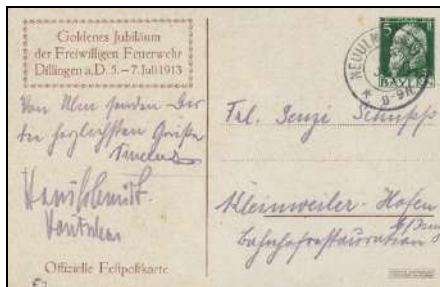 Goldenes Jubiläum
der Freiwilligen Feuerwehr
Dillingen a.D. 5.–7. Juli 1913
Von Ulm senden Dir
die herzlichsten Grüße
Offizielle Festpostkarte
5
BAYERN
NEUULM
8-9
Frl. Senzi Schupp
Kleinweiler-Hofen
Bahnhofrestauration